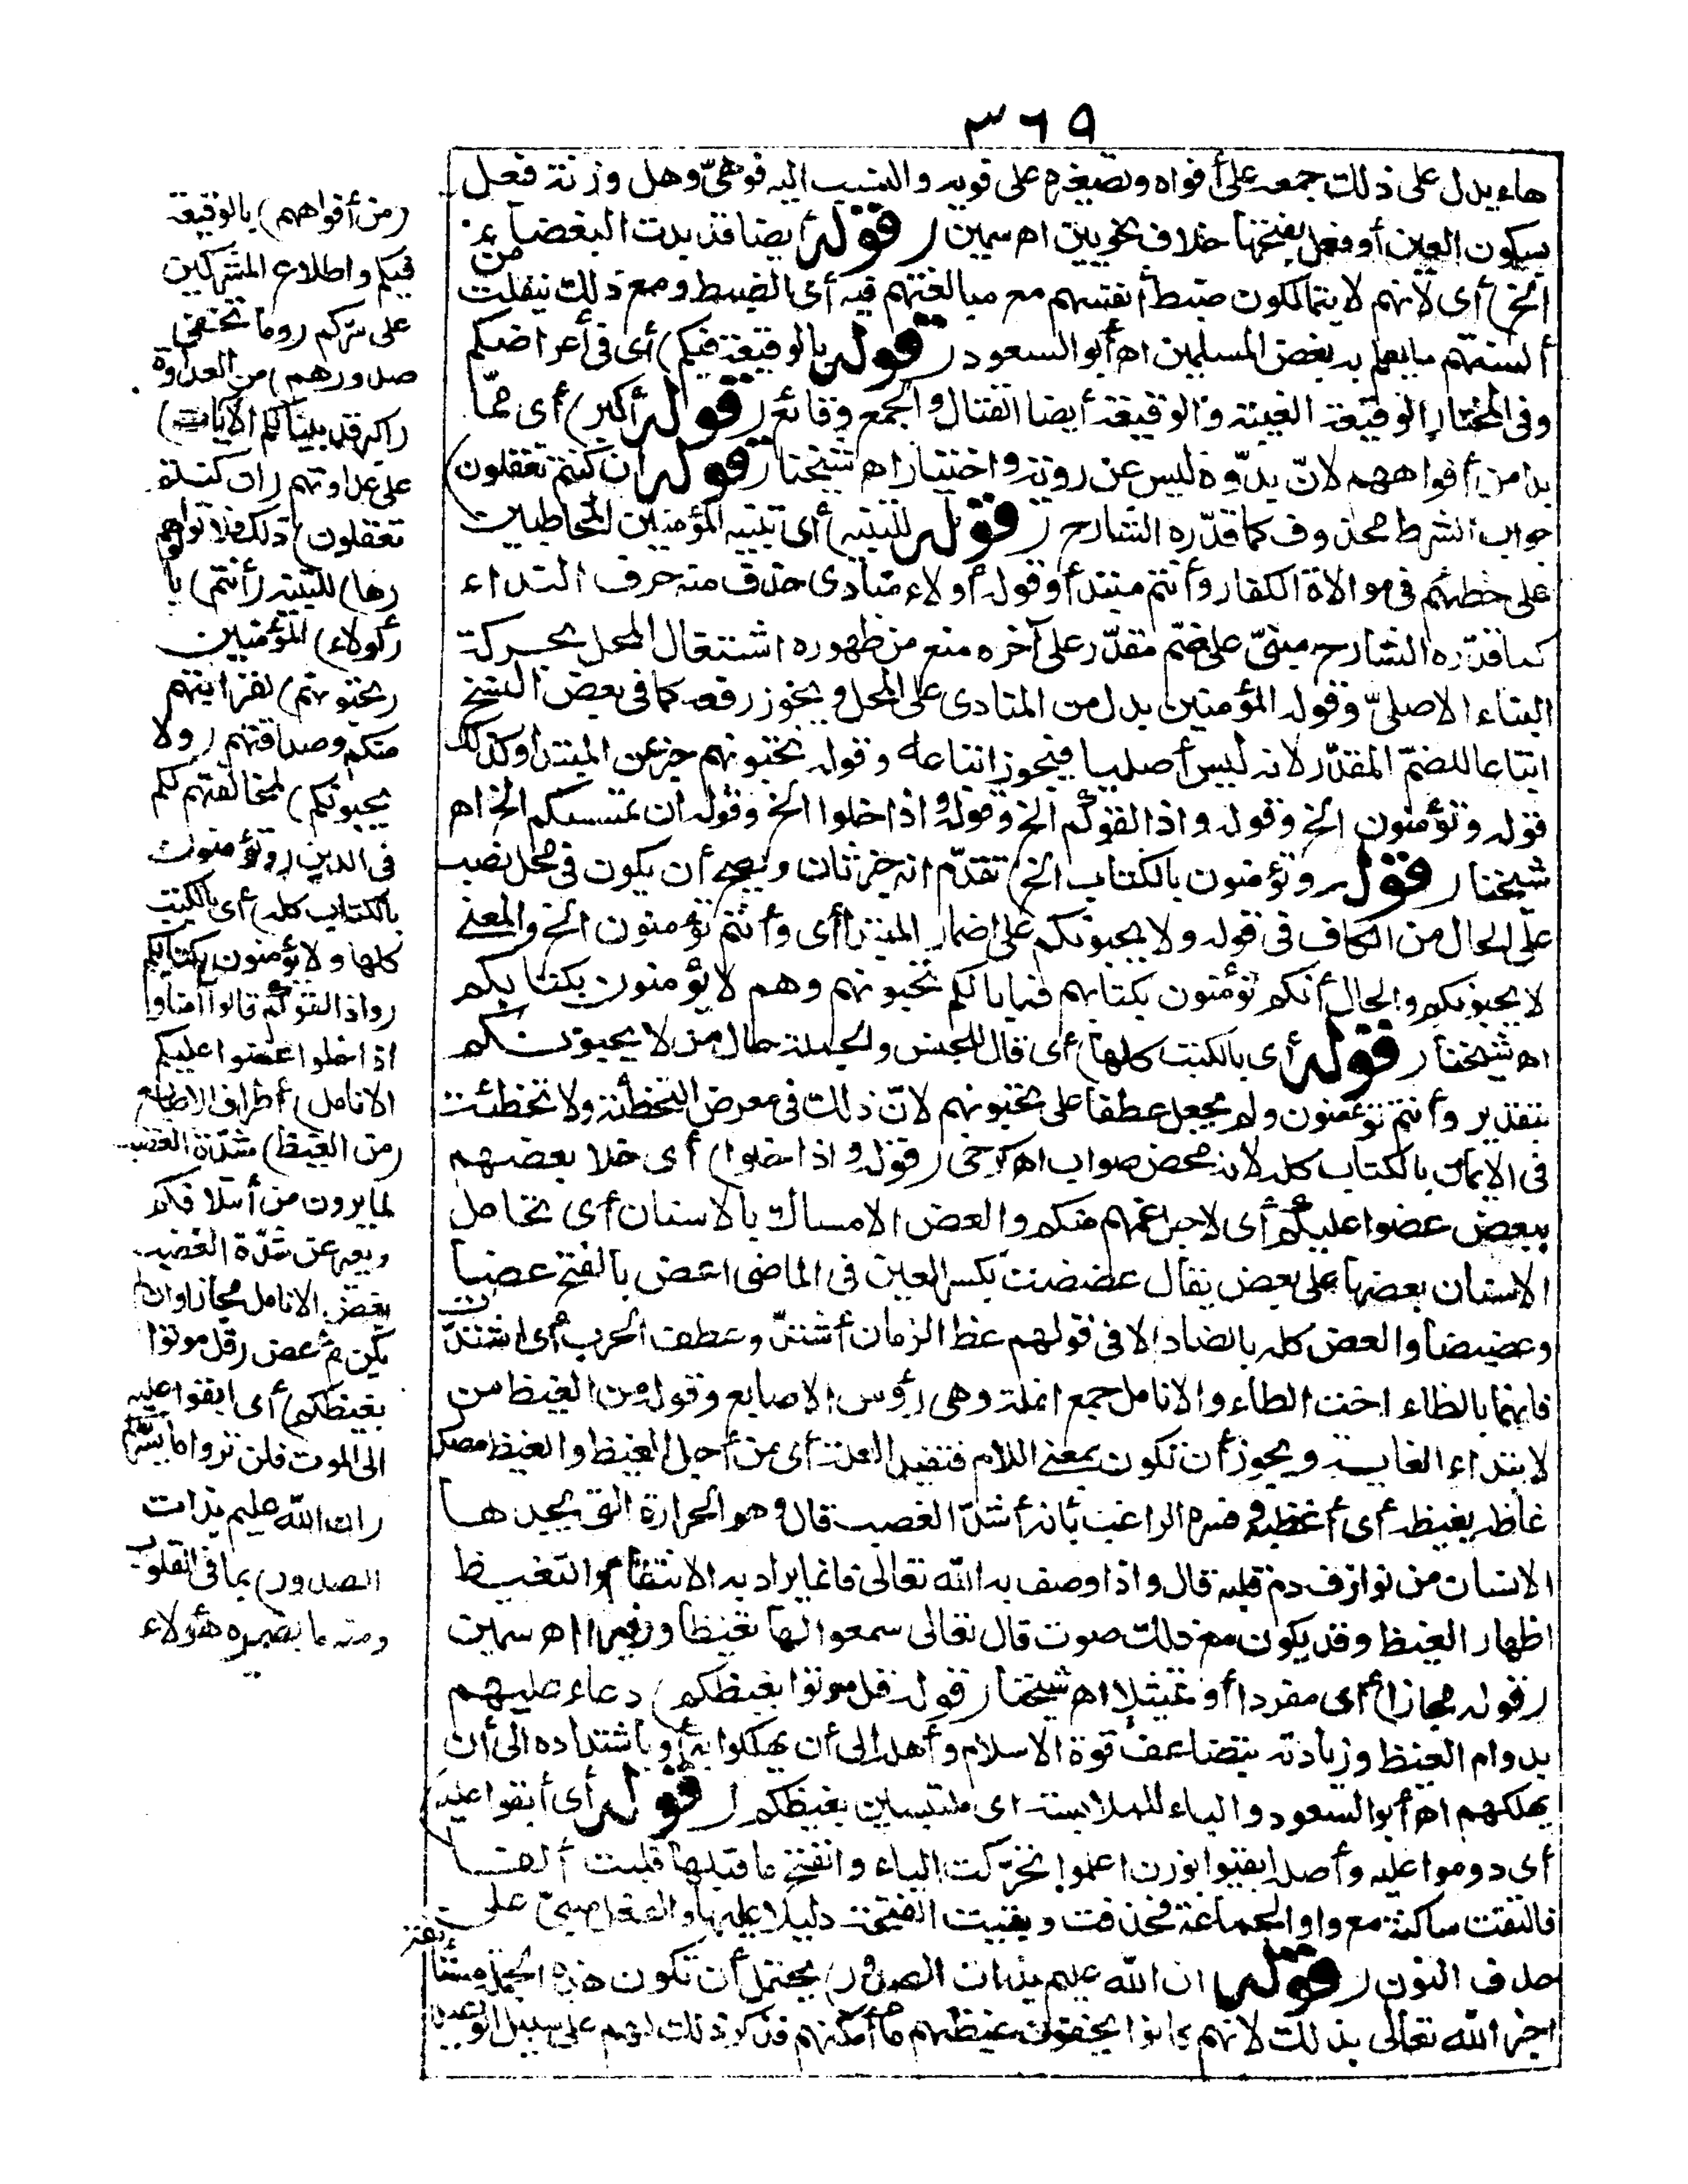 ٣٦٩
هاء يدل على ذلك جمعه على أفواه وتصغيره على فويه والنسب اليه فوهيّ وهل وزنه فعل
بسكون العين أو فعل بفتحها خلاف نحويين اه سمين (قوله أيضا قد بدت البغضاء من
الخ) أى لانهم لا يتمالكون ضبط أنفسهم مع مبالغتهم فيه أى الضبط ومع ذلك ينفلت
ألسنتهم ما يعلم به بغض المسلمين اه أبو السعود (قوله بالوقيعة فيكم) أى فى أعراضكم
وفى المختار الوقيعة الغيبة والوقيعة أيضا القتال والجمع وقائع (قوله أكبر) أى مما
بدا من أفواههم لانّ بدوّه ليس عن روية واختيار اه شيخنا (قوله ان كنتم تعقلون)
جواب الشرط محذوف كما قدّره الشارح (قوله للتنبيه) أى تنبيه المؤمنين المخاطبين
على خطئهم فى موالاة الكفار وأنتم مبتدأ وقوله أولاء منادى حذف منه حرف النداء
كما قدّره الشارح مبنىّ على ضم مقدّر على آخره منع من ظهوره اشتغال المحل بحركة
البناء الاصلىّ وقوله المؤمنين بدل من المنادى على المحل ويجوز رفعه كما فى بعض النسخ
اتباعا للضم المقدّر لانه ليس أصليا فيجوز اتباعه وقوله تحبونهم خبر عن المبتدا وكذلك
قوله وتؤمنون الخ وقوله واذا لقوكم الخ وقوله واذا خلوا الخ وقوله ان تمسسكم الخ اه
شيخنا (قوله وتؤمنون بالكتاب الخ) تقدّم انه خبر ثان ويصح أن يكون فى محل نصب
على الحال من الكاف فى قوله ولا يحبونكم على اضمار المبتدا أى وأنتم تؤمنون الخ والمعنى
لا يحبونكم والحال أنكم تؤمنون بكتابهم فما بالكم تحبونهم وهم لا يؤمنون بكتابكم
اه شيخنا (قوله أى بالكتب كلها) أى فال للجنس والجملة حال من لا يحبونكم
بتقدير وأنتم تؤمنون ولم يجعل عطفا على تحبونهم لانّ ذلك فى معرض التخطئة ولا تخطئة
فى الايمان بالكتاب كله لانه محض صواب اه كرخى (قوله واذا خلوا) أى خلا بعضهم
ببعض عضوا عليكم أى لاجل غمهم منكم والعض الامساك بالاسنان أى تحامل
الاسنان بعضها على بعض يقال عضضت بكسر العين فى الماضى اعض بالفتح عضا
وعضيضا والعض كله بالضاد الا فى قولهم عظ الزمان أى اشتدّ وعظت الحرب أى اشتدّت
فانهما بالظاء اخت الطاء والانامل جمع انملة وهى رؤس الاصابع وقوله من الغيظ من
لابتداء الغاية ويجوز أن تكون بمعنى اللام فتفيد العلة أى من أجل الغيظ والغيظ مصدر
غاظه يغيظه أى أغضبه وفسره الراغب بأنه أشدّ الغضب قال وهو الحرارة التى يجدها
الانسان من ثوران دم قلبه قال واذا وصف به الله تعالى فانما يراد به الانتقام والتغيظ
اظهار الغيظ وقد يكون مع ذلك صوت قال تعالى سمعوا لها تغيظا وزفيرا اه سمين
(قوله مجازا) أى مفردا أو تمثيلا اه شيخنا (قوله قل موتوا بغيظكم) دعاء عليهم
بدوام الغيظ وزيادته بتضاعف قوة الاسلام وأهله الى أن يهلكوا به أو باشتداده الى أن
يهلكهم اه أبو السعود والباء للملابسة أى ملتبسين بغيظكم (قوله أى أبقوا عليه)
أى دوموا عليه وأصله ابقيوا بوزن اعلموا تحرّكت الياء وانفتح ما قبلها قلبت ألفا
فالتقت ساكنة مع واو الجماعة فحذفت وبقيت الفتحة دليلا عليها والفعل مبنىّ على
حذف النون (قوله ان الله عليم بذات الصدور) يحتمل أن تكون هذه الجملة مستأنفة
اخبر الله تعالى بذلك لانهم كانوا يخفون غيظهم ما أمكنهم فذكر ذلك لهم على سبيل الوعيد
(من أفواههم) بالوقيعة
فيكم واطلاع المشركين
على سرّكم (وما تخفى
صدورهم) من العداوة
(أكبر قد بينا لكم الآيات)
على عداوتهم (ان كنتم
تعقلون) ذلك فلا توالوهم
(ها) للتنبيه (أنتم) يا
(أولاء) المؤمنين
(تحبونهم) لقرابتهم
منكم وصداقتهم (ولا
يحبونكم) لمخالفتهم لكم
فى الدين (وتؤمنون
بالكتاب كله) أى بالكتب
كلها ولا يؤمنون بكتابكم
(واذا لقوكم قالوا آمنا و
اذا خلوا عضوا عليكم
الانامل) أطراف الاصابع
(من الغيظ) شدّة الغضب
لما يرون من ائتلافكم
ويعبر عن شدّة الغضب
بعض الانامل مجازا وان لم
يكن ثم عض (قل موتوا
بغيظكم) أى ابقوا عليه
الى الموت فلن تروا ما يسركم
(ان الله عليم بذات
الصدور) بما فى القلوب
ومنه ما يضمره هؤلاء